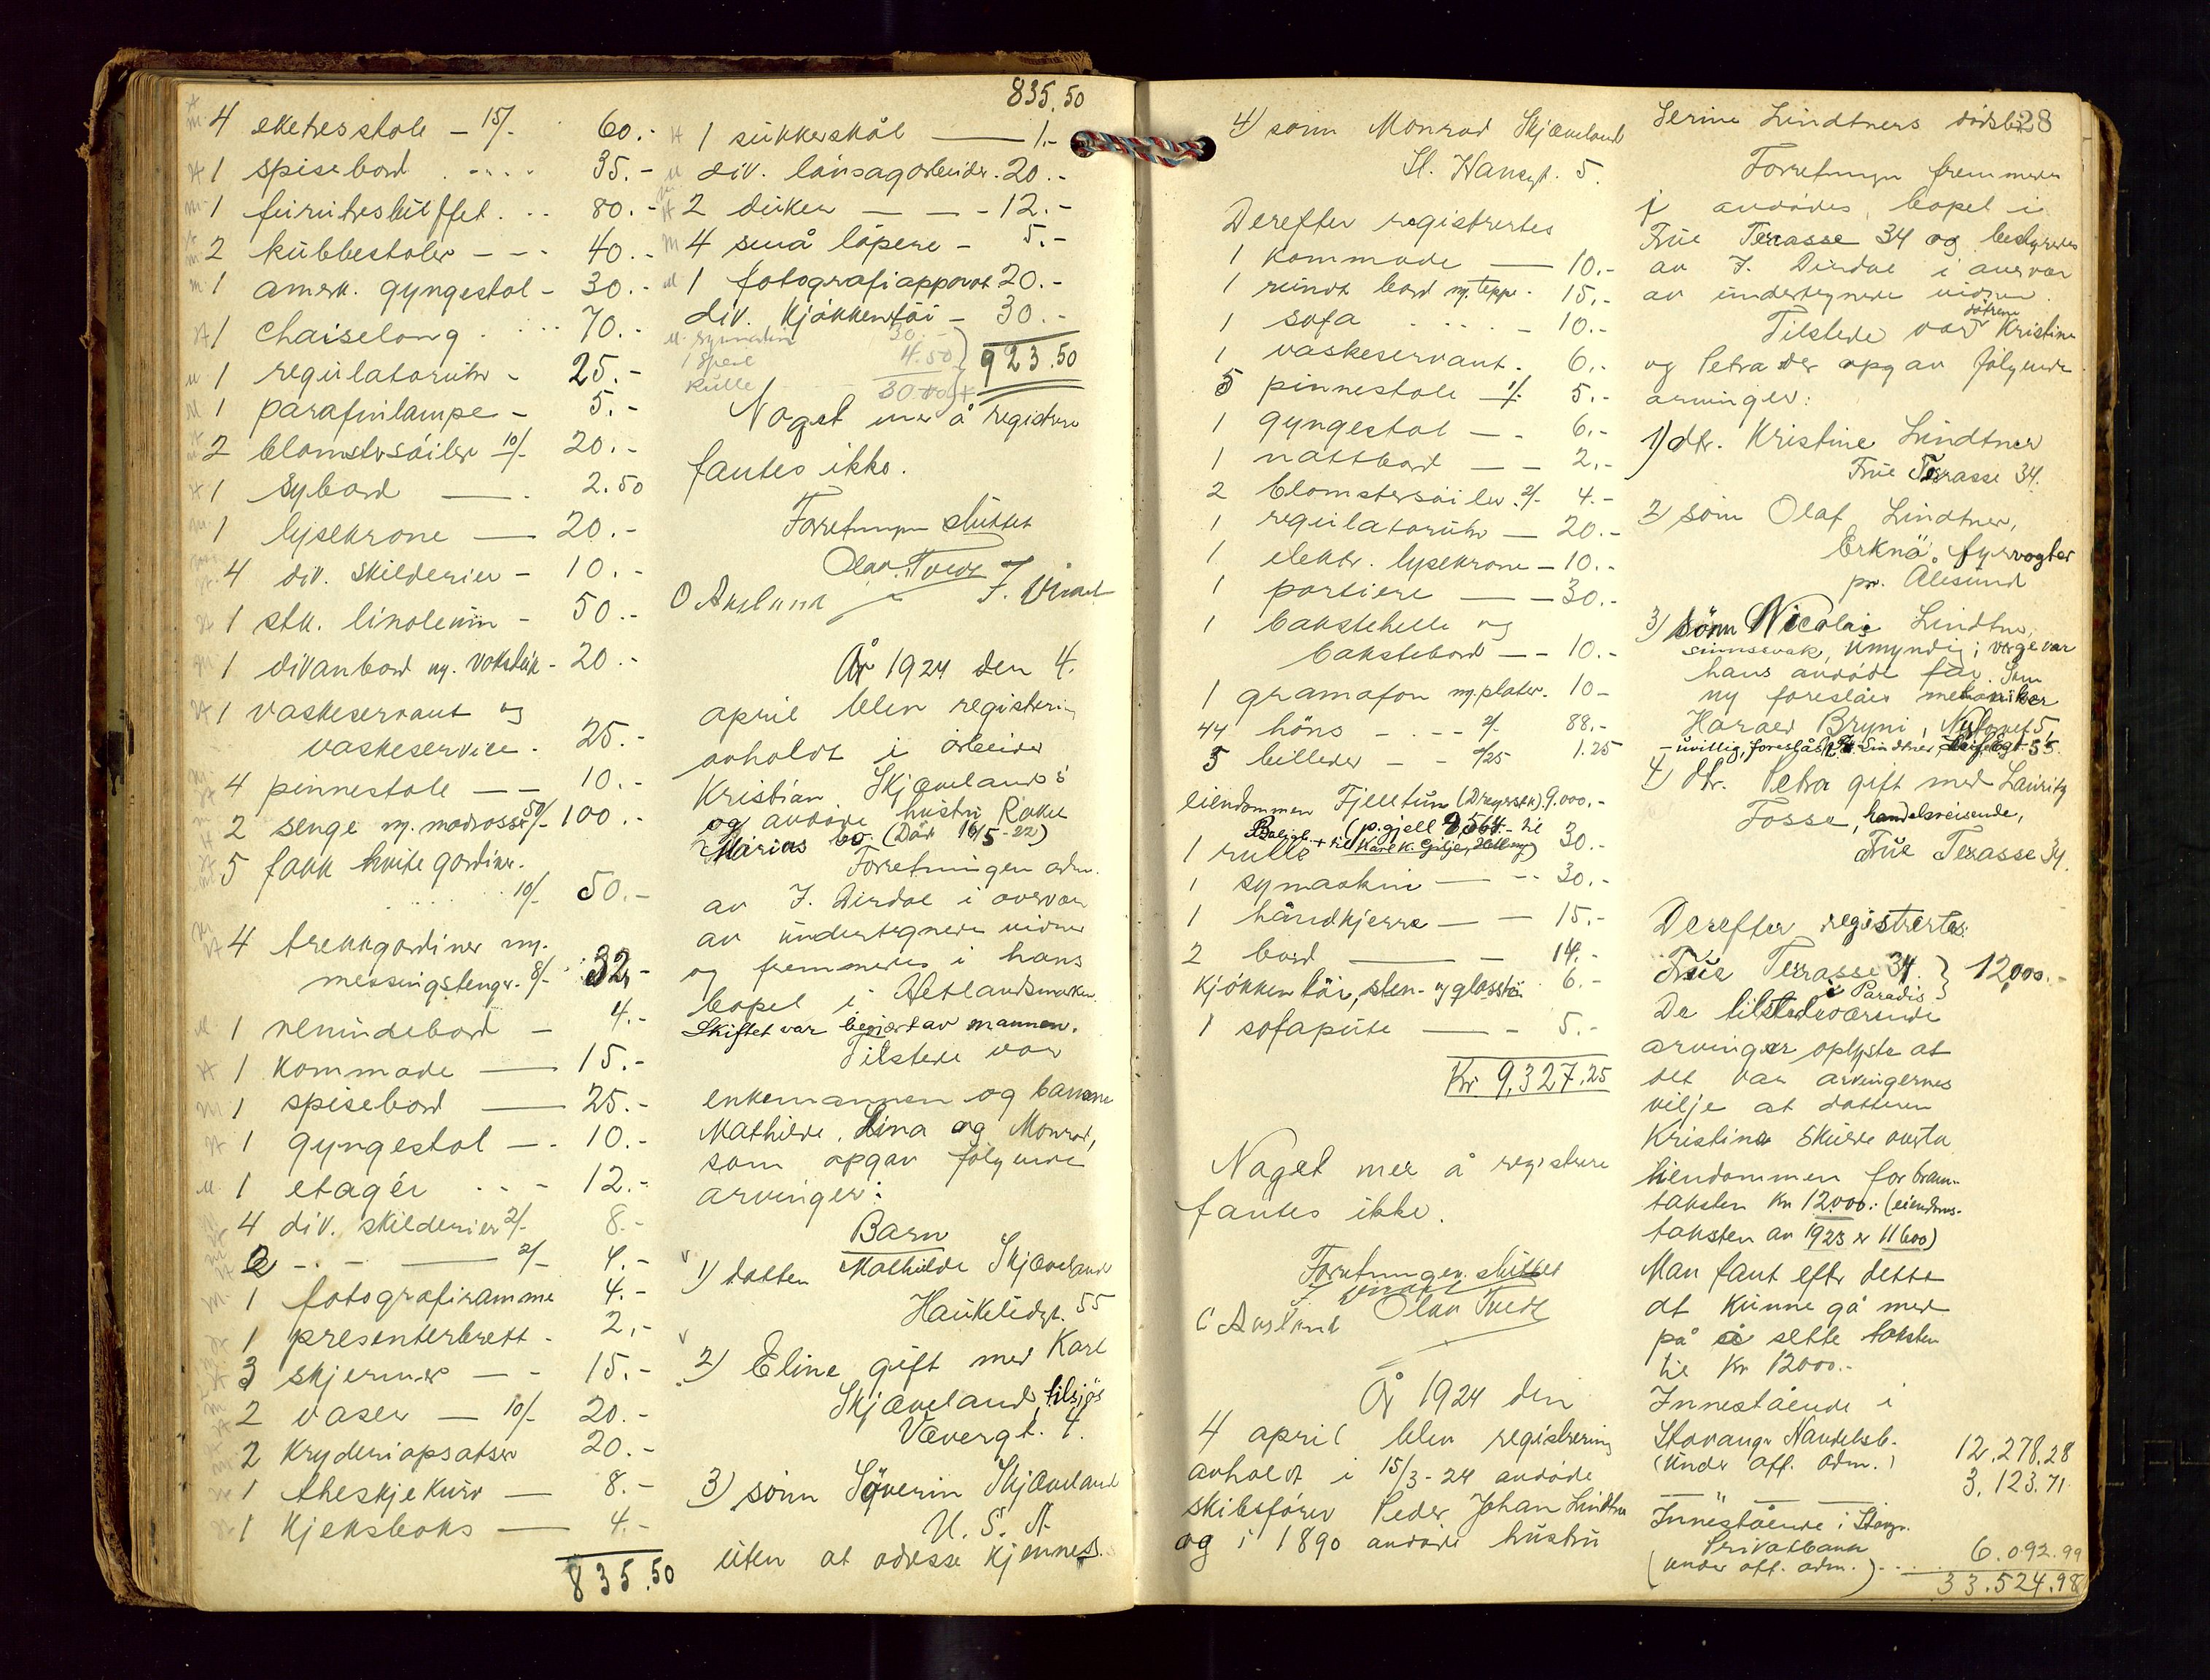 4 eketresstole - 15/- 60.-
1 spisebord .... 35.-
1 furutresbuffet ... 80.-
2 kubbestoler - - - 40.-
1 amrk. gyngestol - 30.-
1 chaiselong .... 70.-
1 regulatorur - 25.-
1 parafinlampe - 5.-
2 blomstersöiler 10/- 20.-
1 sybord — . 2.50
1 lysekrone — 20.-
4 div. skilderier - 10.-
1 stk. linoleum - 50.-
1 divanbord m. voksduk - 20.-
1 vaskeservant og
vaskeservice . 25.-
4 pinnestole - - 10.-
2 senge m. madrasser 50/- 100.-
5 fakk hvite gardiner.
10/- 50.-
4 trekkgardiner m.
messingstenger. 8/- 32.-
1 vedundebord - 4.-
1 kommode — 15.-
1 spisebord — 25.-
1 gyngestol - . 10.-
1 etagér . . - 12.-
4 div. skilderier 2/- 8.-
2 - . - — 2/- 4.-
1 fotografiramme 4.-
1 presenterbrett . 2.-
3 skjermer - - 15.-
2 vaser — 10/- 20.-
2 kryderiopsatser 20.-
1 theskjekurv — 8.-
1 kjeksboks — 4.-
835.50
835.50
1 sukkerskål — 1.-
div. lövsagarbeider. 20.-
2 duker — - - 12.-
4 små löpere - 5.-
1 fotografiapparat 20.-
div. kjökkentöi - 30.-
symaskin 30.-
1 speil 4.50
rulle 30.00
923.50
Noget mer å registrere
fantes ikke.
Forretningen sluttet
Olav Tvedt
O Ausland J. Dirdal
År 1924 den 4.
april blev registering
avholdt i arbeider
Kristian Skjævelands
og avdöde hustru Rakel
Marias bo. (Död 16/5-22)
Forretningen adm.
av J. Dirdal i overvær
av undertegnede vidner
og fremmedes i hans
bopel i Hetlandsmarken.
Skiftet var begjært av mannen.
Tilstede var
enkemannen og barnene
Mathilde, Lina og Monrad,
som opgav fölgende
arvinger:
Barn
1) datter Mathilde Skjæveland
Haukelidgt. 55
2) Eline gift med Karl
Skjæveland, tilsjös
Vævergt. 4.
3) sönn Söverin Skjæveland
U. S. A.
uten at adresse kjennes.
4) sönn Monrad Skjæveland
St. Hansgt. 5.
Derefter registrertes
1 kommode — 10.-
1 rundt bord m. teppe. 15.-
1 sofa ..... - 10.-
1 vaskeservant . 6.-
5 pinnestole 1/- 5.-
1 gyngestol - . 6.-
1 nattbord - - 2.-
2 blomstersöiler 2/- 4.-
1 regulatorur - 20.-
1 elektr. lysekrone - 10.-
1 portiere — - 30.-
1 bakstehelle og
bakstebord - - 10.-
1 gramafon m. plater. 10-
44 höns - . - - 2/- 88.-
5 billeder - - -/25 1.25
eiendommen Fjelltun (Dreyerstr.) 9.000.-
(p.gjell 8564.- til
1 rulle 30.-
1 symaskin — - - 30.-
1 håndkjerre — - 15.-
2 bord — - 14.-
kjökkentöi, sten- og glasstöi 6.-
1 sofapute — - 5.-
Kr 9.327.25
Noget mer å registrere
fantes ikke.
Forretningen sluttet
J Dirdal
O Ausland Olav Tvedt
År 1924 den
4 april blev registrering
avholdt i 15/3-24 avdöde
skibsförer Peder Johan Lindtner
og i 1890 avdöde hustru
Serine Lindtners dödsbo 28
Forretningen fremmedes
i avdödes bopel i
Frue Terasse 34 og bestyredes
av J. Dirdal i overvær
av undertegnede vidner.
Tilstede var dötrene Kristine
og Petra der opgav fölgende
arvinger:
1) dtr. Kristine Lindtner
Frue Terrasse 34.
2) sönn Olaf Lindtner,
Erknä fyrvogter
pr. Ålesund
3) sönn Nicolai Lindtner,
sinnssvak, umyndig; verge var
hans avdöde far. Som
ny foreslåes mekaniker
Harald Bryni, Nytorvet 5,
- uvillig, foreslås Lindtner, 55.
4) dtr. Petra gift med Lauritz
Fosse, handelsreisende,
Frue Terasse 34.
Derefter registrertes:
Frue Terrasse 34. } 12000.-
i Paradis
De tilstedeværende
arvinger oplyste at
det var arvingernes
vilje at datteren
Kristine skulde overta
eiendommen for brann-
taksten kr 12000.- (eiendoms-
taksten av 1923 er 11600)
Man fant efter dette
at kunne gå med
på å sette taksten
til kr 12000.-
Innestående i
Stavanger Handelsb.
(under off. adm.) 12.278.28
3.123.71
Innestående i Stavgr.
Privatbank
(under off. adm.) ... 6.092.99
33.524.98